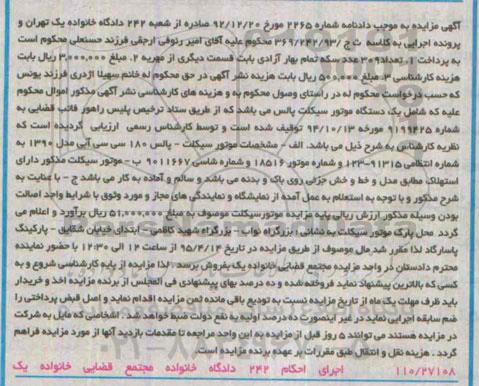 آگهی مزایده به موجب دادنامه شماره ۲۲۶۵ مورخ ۹۲/۱۲/۲۰ صادره از شعبه ۲۴۲ دادگاه خانواده یک تهران و
پرونده اجرایی به کلاسه ث ج/۳۶۹/۲۴۲/۹۳ محکوم علیه آقای امیر رئوفی ارجقی فرزند حسنعلی محکوم است
به پرداخت ۱. تعداد ۳۰۹ عدد سکه تمام بهار آزادی بابت قسمت دیگری از مهریه ۲. مبلغ ۳,۰۰۰,۰۰۰ ریال بابت
هزینه کارشناسی ۳. مبلغ ۵۰۰,۰۰۰ ریال بابت هزینه نشر آگهی در حق محکوم له خانم سهیلا اژدری فرزند یونس
که حسب درخواست محکوم له در راستای وصول محکوم به و هزینه های کارشناسی نشر آگهی مذکور اموال محکوم
علیه که شامل یک دستگاه موتور سیکلت پالس می باشد که از طریق ستاد ترخیص پلیس راهور فاتب قضایی به
شماره ۹۱۹۹۴۲۵ مورخه ۹۴/۱۰/۱۳ توقیف شده است و توسط کارشناس رسمی ارزیابی گردیده است که
نظریه کارشناس به شرح ذیل می باشد. الف - مشخصات موتور سیکلت - پالس ۱۸۰ سی سی آبی مدل ۱۳۹۰ به
شماره انتظامی ۹۱۳۱۵-۱۲۳ و شماره موتور ۱۸۵۱۶ و شماره شاسی ۹۰۱۱۶۶۷ ب - موتور سیکلت مذکور دارای
استهلاک مطابق مدل و خط و خش جزئی روی باک و بدنه می باشد و سالم و آماده به کار می باشد ج - با عنایت به
شرح مذکور و با توجه به استعلام به عمل آمده از نمایشگاه و نمایندگی های مجاز و مورد وثوق با شرایط واجد اصالت
بودن وسیله مذکور ارزش ریالی پایه مزایده موتورسیکلت موصوف به مبلغ ۵۱,۰۰۰,۰۰۰ ریال برآورد و اعلام می
گردد. محل پارک موتور سیکلت به نشانی: بزرگراه نواب - بزرگراه شهید کاظمی - ابتدای خیابان شقایق - پارکینگ
پاسارگاد لذا مقرر شد مال موصوف از طریق مزایده در تاریخ ۹۵/۴/۱۴ از ساعت ۱۲ الی ۱۲:۳۰ با حضور نماینده
محترم دادستان در واحد مزایده مجتمع قضایی خانواده یک بفروش برسد. لذا مزایده از پایه کارشناسی شروع و به
کسی که بالاترین پیشنهاد نماید فروخته شده و ده درصد بهای پیشنهادی فی المجلس از برنده مزایده اخذ و خریدار
باید ظرف مهلت یک ماه از تاریخ مزایده نسبت به تودیع باقی مانده ثمن مزایده اقدام نماید و اصل قبض پرداختی را
ضم سابقه اجرایی نماید در غیر اینصورت ده درصد اولیه به نفع دولت ضبط خواهد شد. اشخاصی که مایل به شرکت
در مزایده هستند می توانند ۵ روز قبل از مزایده به این واحد مراجعه تا مقدمات بازدید آنها از مورد مزایده فراهم
گردد. هزینه نقل و انتقال طبق مقررات بر عهده برنده مزایده است.
۱۱۰/۲۷۱۰۸ اجرای احکام ۲۴۲ دادگاه خانواده مجتمع قضایی خانواده یک